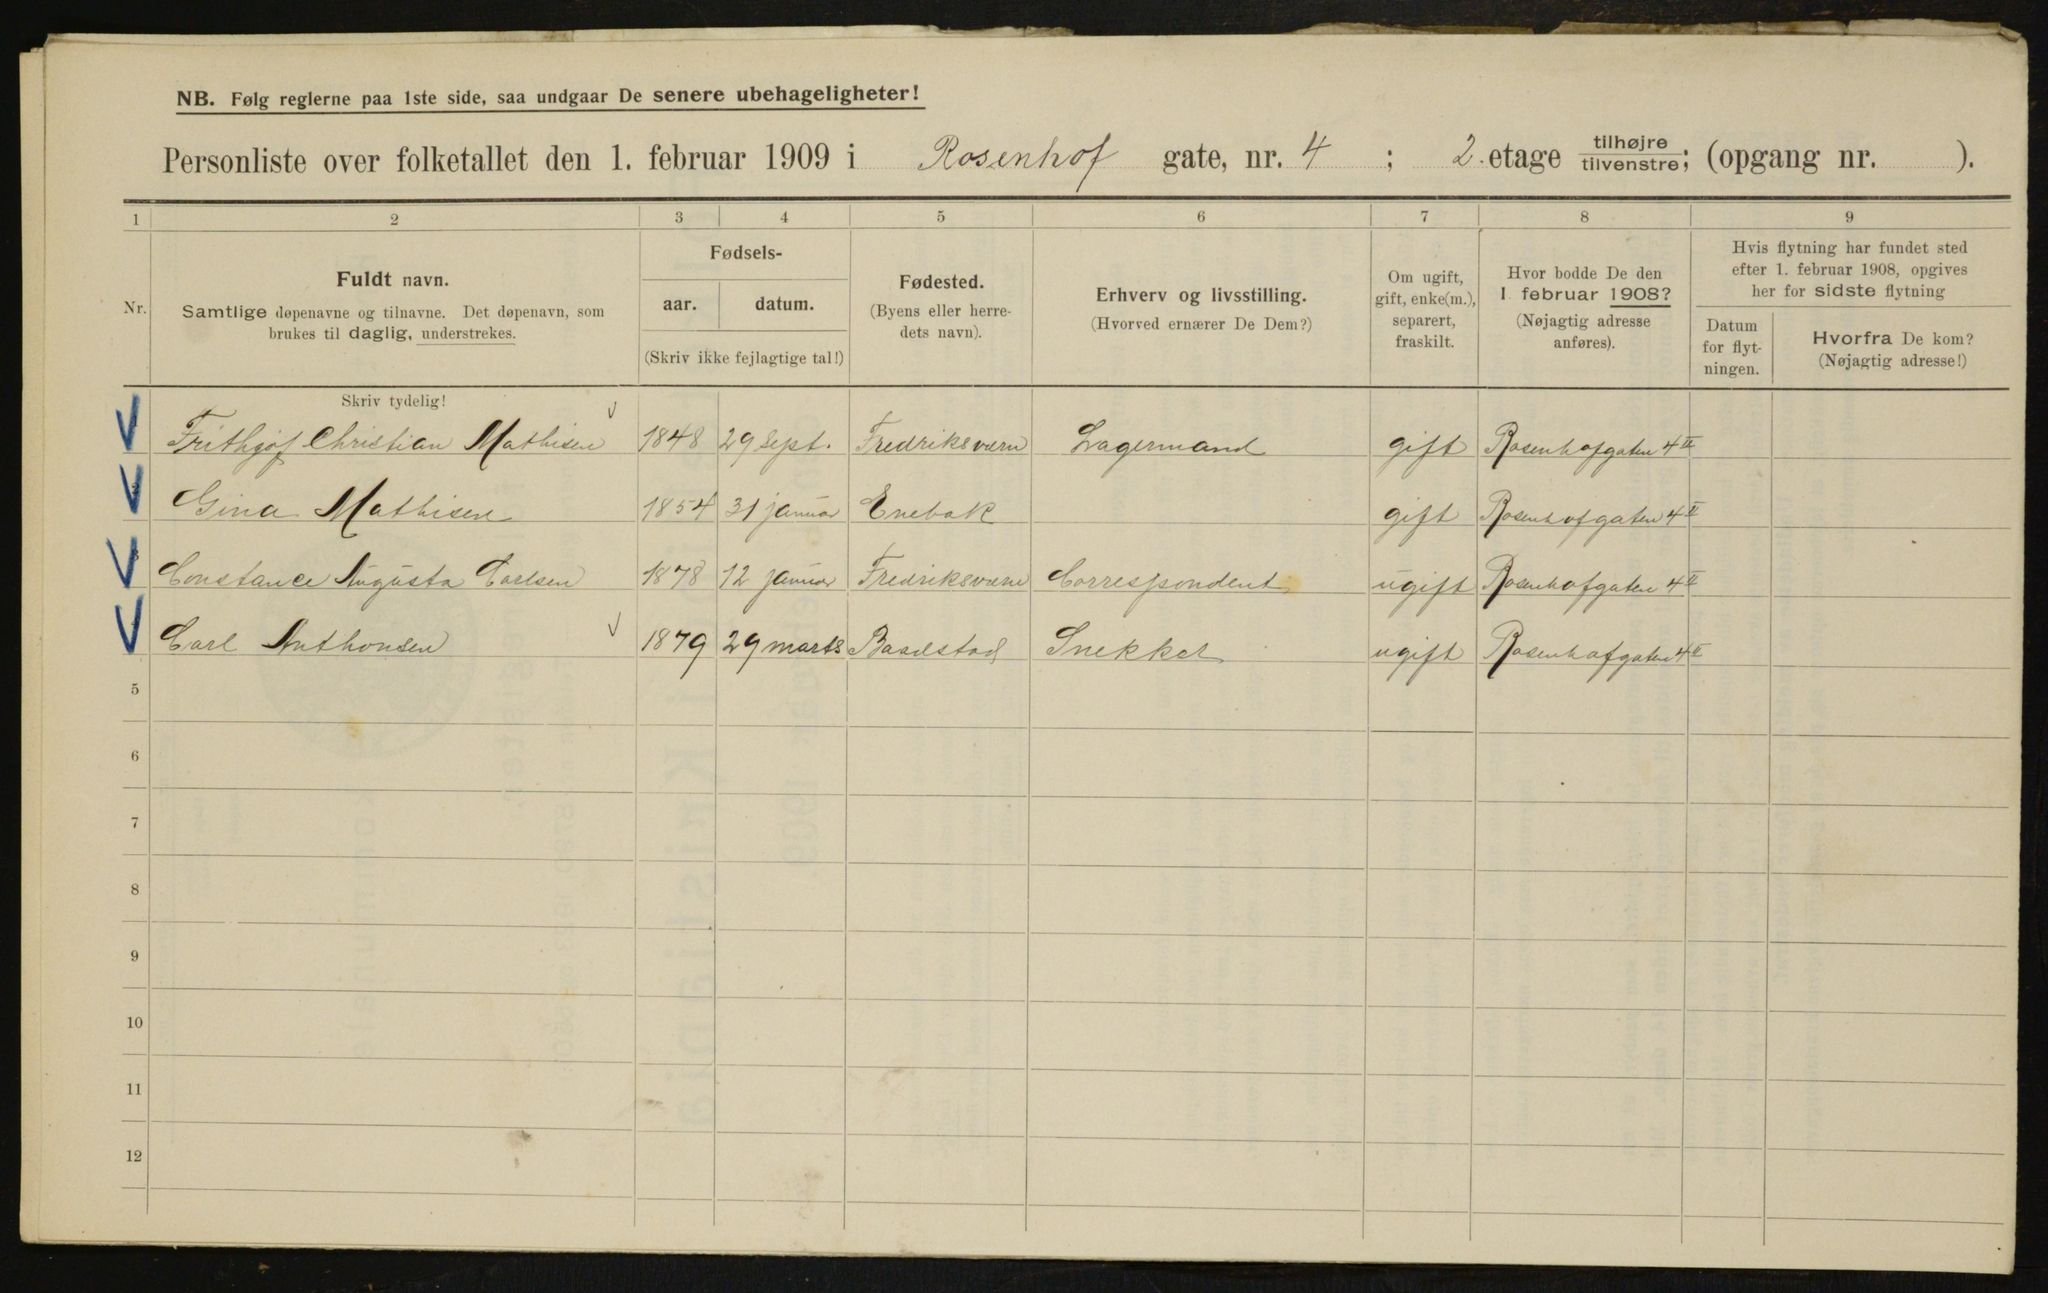 NB. Følg reglerne paa 1ste side, saa undgaar De senere ubehageligheter!
Personliste over folketallet den 1. februar 1909 i Rosenhof gate, nr. 4 ; 2. etage tilhøjre tilvenstre; (opgang nr. ).
1 2 3 4 5 6 7 8 9
Nr.
Fuldt navn.
Samtlige døpenavne og tilnavne. Det døpenavn, som
brukes til daglig, understrekes.
Fødsels-
aar. datum.
(Skriv ikke fejlagtige tal!)
Fødested.
(Byens eller herre-
dets navn).
Erhverv og livsstilling.
(Hvorved ernærer De Dem?)
Om ugift,
gift, enke(m.),
separert,
fraskilt.
Hvor bodde De den
1 februar 1908?
(Nøjagtig adresse
anføres).
Hvis flytning har fundet sted
efter 1. februar 1908, opgives
her for sidste flytning
Datum
for flyt-
ningen.
Hvorfra De kom?
(Nøjagtig adresse!)
Skriv tydelig!
Frithjof Christian Mathisen 1848 29 Sept. Fredriksværn Lagermand gift Rosenhofgaten 4 II
Gina Mathisen 1854 31 januar Enebak gift Rosenhofgaten 4 II
3 Constance Augusta Carlsen 1878 12 januar Fredriksværn Correspondent ugift Rosenhofgaten 4 II
Carl Anthonsen 1879 29 marts Baastad Snekker ugift Rosenhofgaten 4 II
5
6
7
8
9
10
11
12